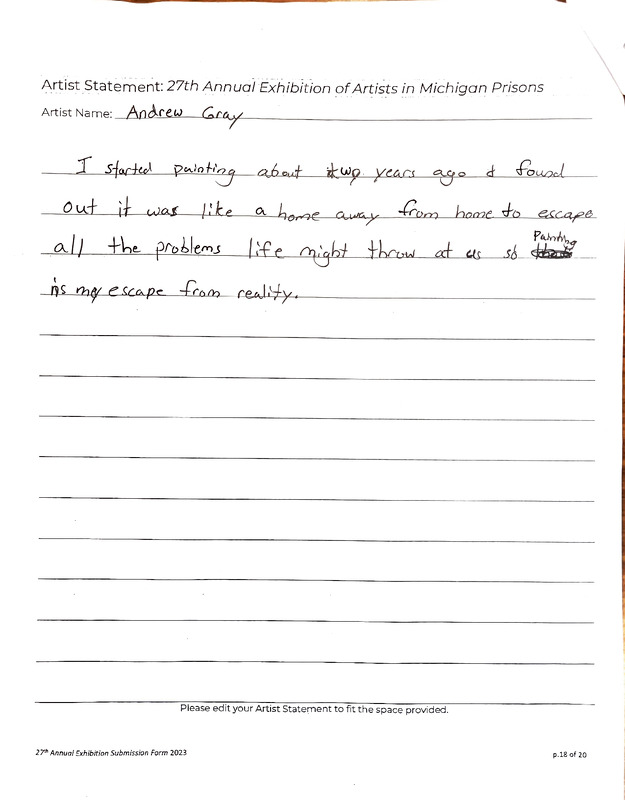 Artist Statement: 27th Annual Exhibition of Artists in Michigan Prisons
Artist Name: Andrew Gray
I started painting about two years ago & found
out it was like a home away from home to escape
all the problems life might throw at us so Painting
is my escape from reality.
Please edit your Artist Statement to fit the space provided.
27th Annual Exhibition Submission Form 2023 p.18 of 20